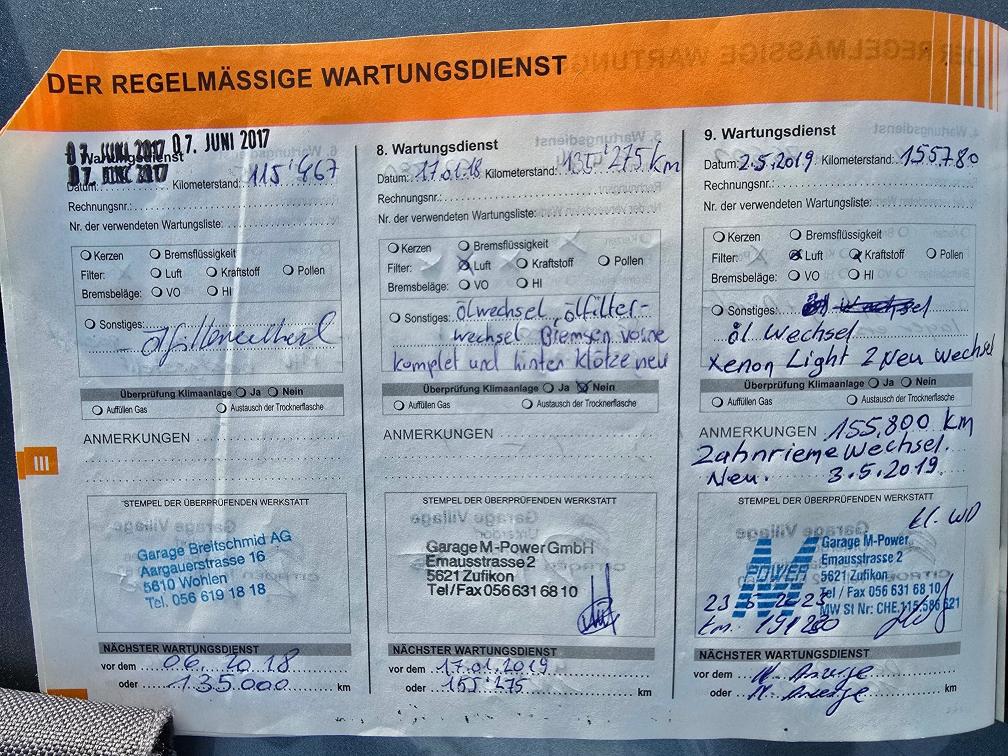 DER REGELMÄSSIGE WARTUNGSDIENST
07. JUNI 2017 07. JUNI 2017
Wartungsdienst
07. JUNI 2017
Datum: Kilometerstand: 115'467
Rechnungsnr.:
Nr. der verwendeten Wartungsliste:
Kerzen Bremsflüssigkeit
Filter: Luft Kraftstoff Pollen
Bremsbeläge: VO HI
Sonstiges:
Überprüfung Klimaanlage Ja Nein
Auffüllen Gas Austausch der Trocknerflasche
ANMERKUNGEN
STEMPEL DER ÜBERPRÜFENDEN WERKSTATT
Garage Breitschmid AG
Aargauerstrasse 16
5610 Wohlen
Tel. 056 619 18 18
NÄCHSTER WARTUNGSDIENST
vor dem 06. 2018
oder 135.000 km
III
8. Wartungsdienst
Datum: 17.01.18 Kilometerstand: 135'275 km
Rechnungsnr.:
Nr. der verwendeten Wartungsliste:
Kerzen Bremsflüssigkeit
Filter: Luft Kraftstoff Pollen
Bremsbeläge: VO HI
Sonstiges: ölwechsel, ölfilter-
wechsel Bremsen vorne
komplet und hinten Klötze neu
Überprüfung Klimaanlage Ja Nein
Auffüllen Gas Austausch der Trocknerflasche
ANMERKUNGEN
STEMPEL DER ÜBERPRÜFENDEN WERKSTATT
Garage M-Power GmbH
Emausstrasse 2
5621 Zufikon
Tel/Fax 056 631 68 10
NÄCHSTER WARTUNGSDIENST
vor dem 17.01.2019
oder 155'275 km
9. Wartungsdienst
Datum: 2.5.2019 Kilometerstand: 155780
Rechnungsnr.:
Nr. der verwendeten Wartungsliste:
Kerzen Bremsflüssigkeit
Filter: Luft Kraftstoff Pollen
Bremsbeläge: VO HI
Sonstiges:
öl Wechsel
Xenon Light 2 Neu wechsel
Überprüfung Klimaanlage Ja Nein
Auffüllen Gas Austausch der Trocknerflasche
ANMERKUNGEN 155,800 km
Zahnrieme Wechsel.
Neu. 3.5.2019.
STEMPEL DER ÜBERPRÜFENDEN WERKSTATT
kl. WD
M POWER
Garage M-Power
Emausstrasse 2
5621 Zufikon
Tel / Fax 056 631 68 10
MW St Nr: CHE.115.586 621
km. 191280
NÄCHSTER WARTUNGSDIENST
vor dem N. Anzeige
oder N. Anzeige km